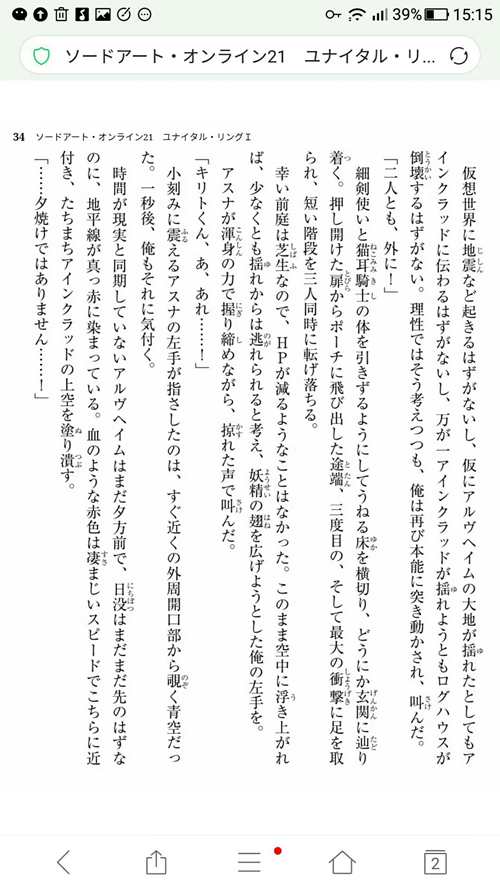 39% 15:15
ソードアート・オンライン21 ユナイタル・リ...
34 ソードアート・オンライン21 ユナイタル・リングⅠ
仮想世界に地震など起きるはずがないし、仮にアルヴヘイムの大地が揺れたとしてもア
インクラッドに伝わるはずがないし、万が一アインクラッドが揺れようともログハウスが
倒壊するはずがない。理性ではそう考えつつも、俺は再び本能に突き動かされ、叫んだ。
「二人とも、外に！」
細剣使いと猫耳騎士の体を引きずるようにしてうねる床を横切り、どうにか玄関に辿り
着く。押し開けた扉からポーチに飛び出した途端、三度目の、そして最大の衝撃に足を取
られ、短い階段を三人同時に転げ落ちる。
幸い前庭は芝生なので、ＨＰが減るようなことはなかった。このまま空中に浮き上がれ
ば、少なくとも揺れからは逃れられると考え、妖精の翅を広げようとした俺の左手を。
アスナが渾身の力で握り締めながら、掠れた声で叫んだ。
「キリトくん、あ、あれ……！」
小刻みに震えるアスナの左手が指さしたのは、すぐ近くの外周開口部から覗く青空だっ
た。一秒後、俺もそれに気付く。
時間が現実と同期していないアルヴヘイムはまだ夕方前で、日没はまだまだ先のはずな
のに、地平線が真っ赤に染まっている。血のような赤色は凄まじいスピードでこちらに近
付き、たちまちアインクラッドの上空を塗り潰す。
「……夕焼けではありません……！」
2